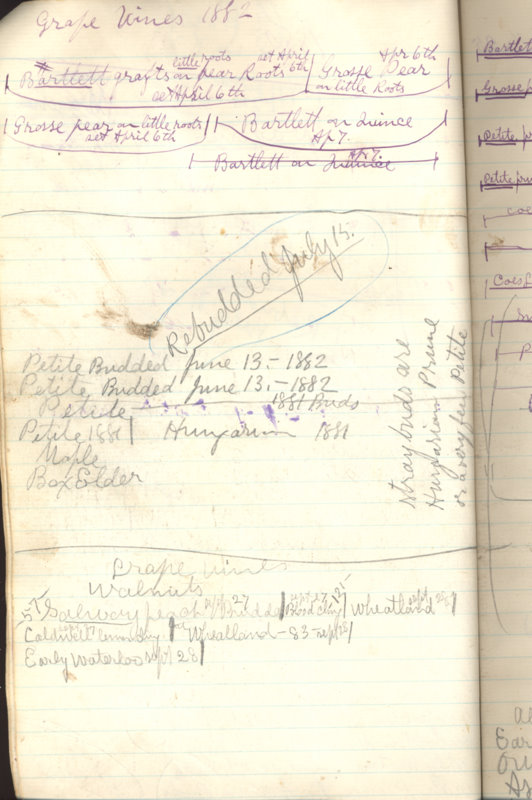 Grape Vines 1882
little roots set April 6th Apr 6th
Bartlett grafts on pear Roots Grosse Pear
set April 6th on little Roots
Grosse pear on little roots Bartlett on Quince
set April 6th Ap 7.
Ap 7.
Bartlett on Quince
Rebudded July 15.
Petite Budded June 13.-1882
Petite Budded June 13.-1882
Petite 1881 Buds
Petite 1881 Hungarian 1881
Maple
Box Elder
stray buds are
Hungarian Prune
or a very few Petite
Grape Vines
Walnuts
Salway peach sept 27 Blood cling Wheatland sept 28
Caldwell lemon cling Wheatland - 83 - sept 28
Early Waterloo sept 28
Bartlet
Grosse
Petite
Petite
Coes
Ear